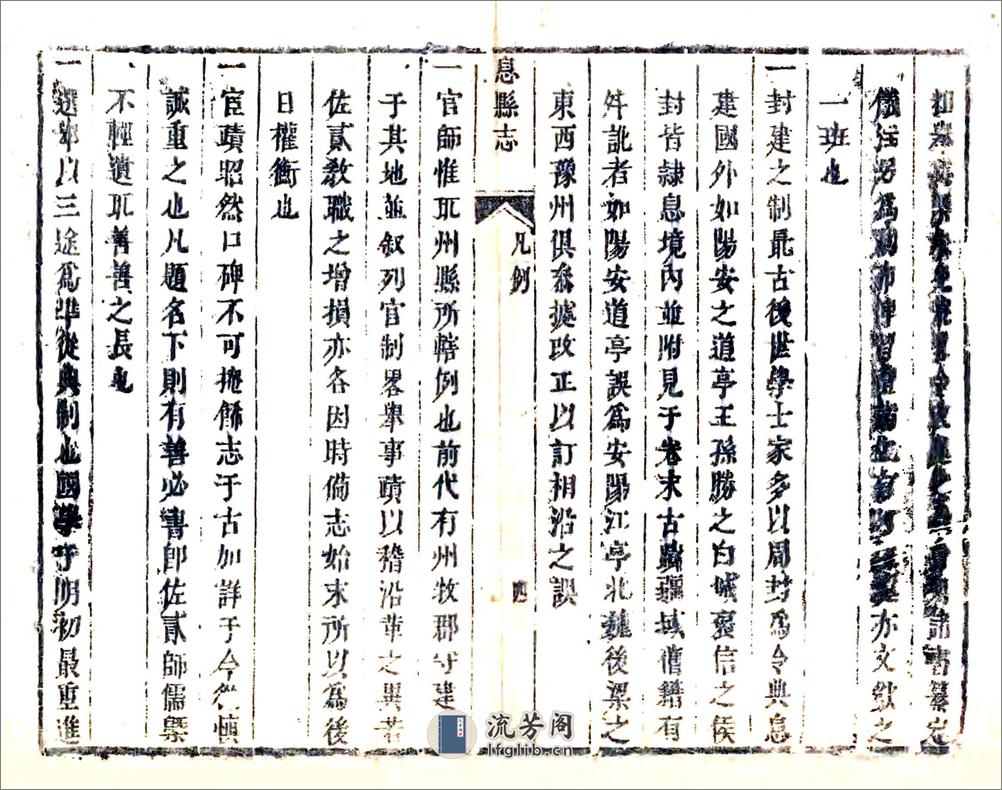 諸書纂定
儀注另為 亦文獻之
一班也
一封建之制最古後世學士家多以周封為令典息
建國外如陽安之道亭王孫勝之白城褒信之侯
封皆隸息境內並附見于卷末古蹟疆域舊籍有
舛訛者如陽安道亭誤為安陽江亭北魏後梁之
東西豫州俱叅據改正以訂相沿之誤
息縣志
凡例
四
一官師惟取州縣所轄例也前代有州牧郡守建
于其地並叙列官制畧舉事蹟以稽沿革之異若
佐貳教職之增損亦各因時倘志始末所以為後
日權衡也
一宦蹟昭然口碑不可掩飾志于古加詳于今從慎
誠重之也凡題名下則有善必書卽佐貳師儒槩
不輕遺取善善之長也
一選舉以三途為準從典制也國學于明初最重進
流芳阁
lfglib.cn